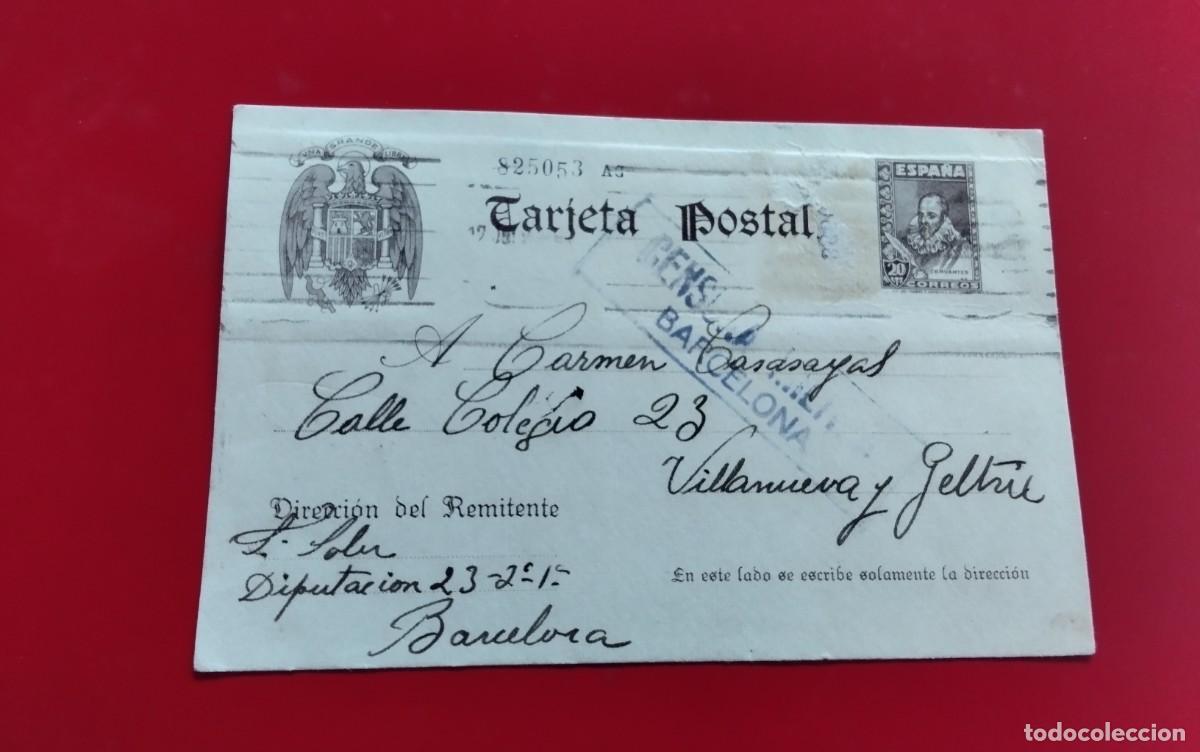 UNA GRANDE LIBRE
825053 A3
Tarjeta Postal
ESPAÑA
20
CERVANTES
CORREOS
CENSURA
BARCELONA
A Carmen Casasayas
Calle Colegio 23
Villanueva y Geltrú
Dirección del Remitente
Soler
Diputacion 23-2º-1ª
Barcelona
En este lado se escribe solamente la dirección
todocoleccion